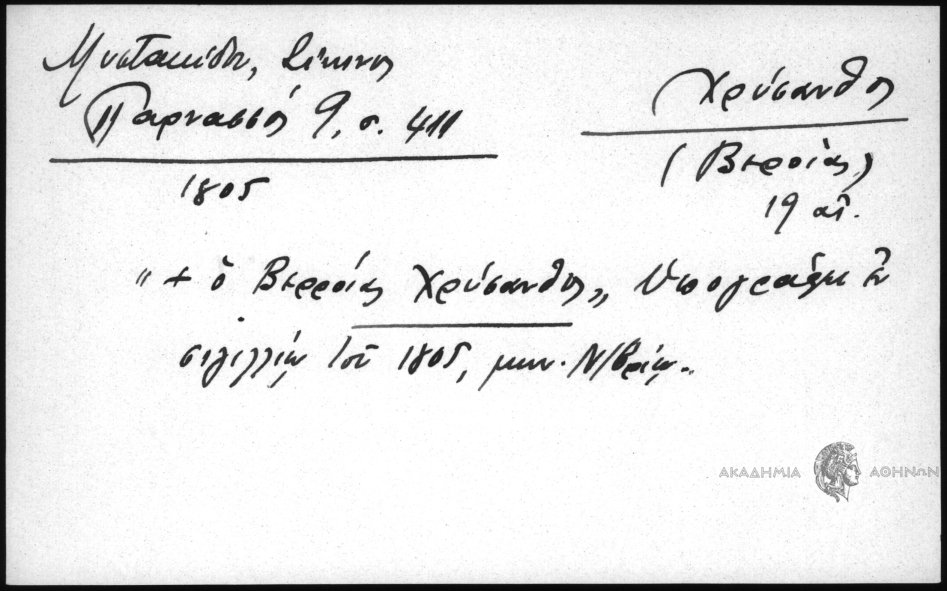 Μυστακίδου, Σίκινος
Παρνασσός 9, σ. 411
1805
Χρύσανθος
(Βεροίας)
19 αἰ.
"+ ὁ Βερροίας Χρύσανθος„ Ὑπογράφει ἐν
σιγιλλίῳ τοῦ 1805, μην. Ν/βρίῳ.
ΑΚΑΔΗΜΙΑ ΑΘΗΝΩΝ